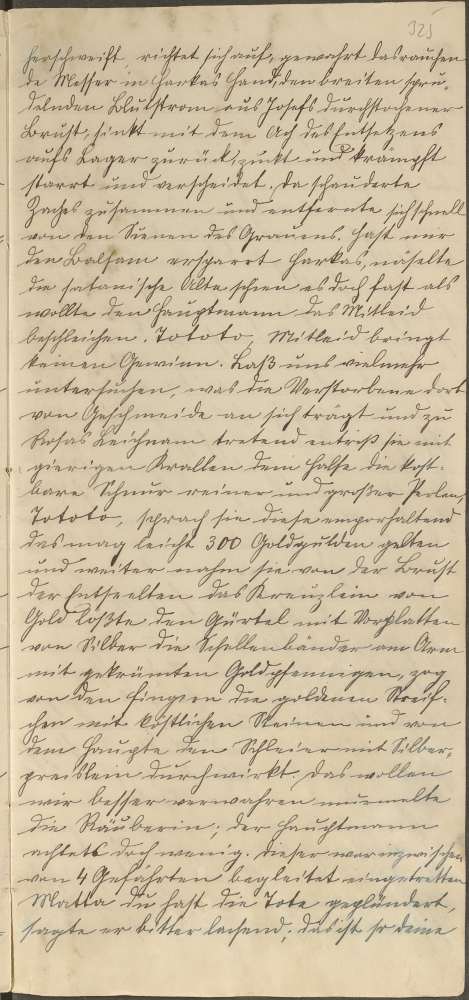 325
herschweift, richtet sich auf, gewahrt das rauchen
de Messer in Harkas Hand, den breiten spru-
delnden Blutstrom aus Josefs durchstochener
Brust, sinkt mit dem Ach des Entsetzens
aufs Lager zurück, zuckt und krämpft
starrt und verscheidet. Da schauderte
Zaches zusammen und entfernte sich schnell
von den Szenen des Grauens. Hast nur
den Balsam erspart Harkas, näselte
die satanische Alte schien es doch fast als
wollte den Hauptmann das Mitleid
beschleichen. Tototo, Mitleid bringt
keinen Gewinn. Laß uns vielmehr
untersuchen, was die Verstorbene dort
von Geschmeide an sich tragt und zu
Rosas Leichnam tretend entriß sie mit
gierigen Krallen dem Halse die kost-
bare Schnur reiner und großer Perlen,
Tototo, sprach sie diese emporhaltend
das mag leicht 300 Goldgulden gelten
und weiter nahm sie von der Brust
der Entseelten das Kreuzlein von
Gold lößte den Gürtel mit Vorplatten
von Silber die Schellenbänder am Arm
mit gekrümten Goldpfennigen, zog
von den Fingern die goldenen Streif-
chen mit köstlichen Steinen und von
dem Haupte den Schleier mit Silber-
preislein durchwirkt, das wollen
wir besser verwahren murmelte
die Räuberin; der Hauptmann
achtets doch wenig. Dieser war inzwischen
von 4 Gefährten begleitet eingetretten
Matta du hast die Tote geplündert,
sagte er bitter lachend; das ist so deine